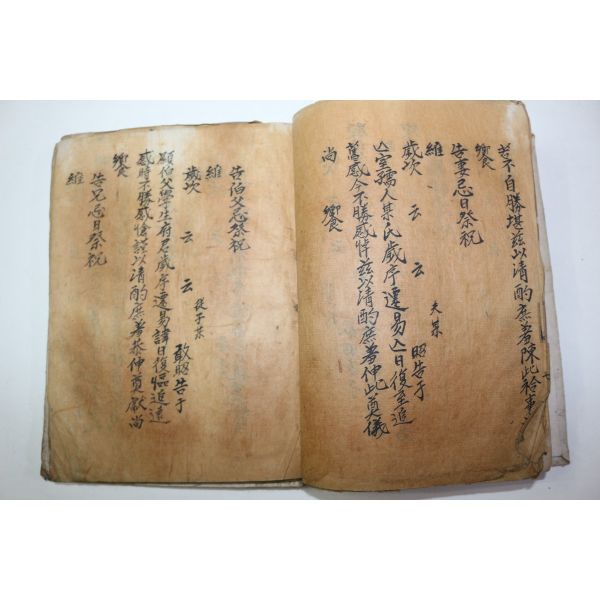 若不自勝堪玆以清酌庶羞陳此
饗
告妻忌日祭祝
維
歲次 云 云 夫某 昭告于
亡室孺人某氏歲序遷易亡日復至追
篤感今不勝感悼玆以清酌庶羞伸此奠儀
尚 饗
告伯父忌祭祝
維
歲次 云 云 從子某 敢昭告于
顯伯父學生府君歲序遷易諱日復臨追遠
感時不勝感愴謹以清酌庶羞恭伸奠獻尚
饗
告兄忌日祭祝
維